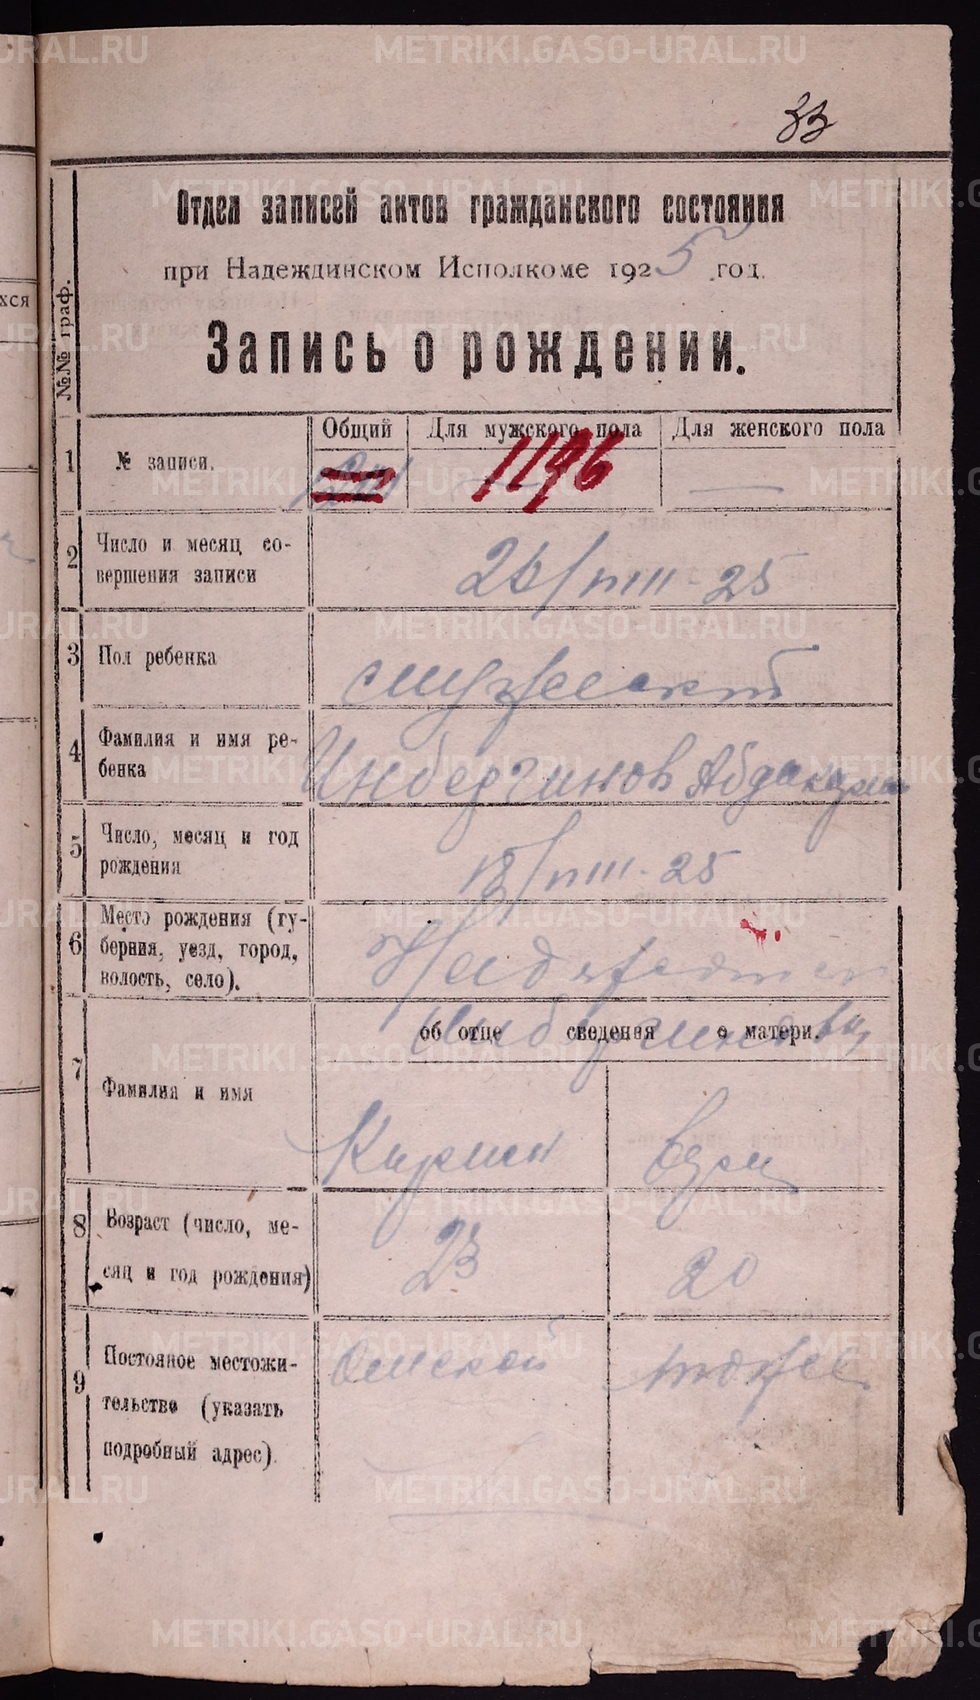 33
Отдел записей актов гражданского состояния
при Надеждинском Исполкоме 1925 год.
Запись о рождении.
№№ граф.
Общий Для мужского пола Для женского пола
1 № записи. 1196
2 Число и месяц со-
вершения записи
26/VIII-25
3 Пол ребенка мужеский
4 Фамилия и имя ре-
бенка
Инбергинов
5 Число, месяц и год
рождения
18/VIII-25
6 Место рождения (гу-
берния, уезд, город,
волость, село).
об отце сведения о матери.
7 Фамилия и имя
8 Возраст (число, ме-
сяц и год рождения)
23 20
9 Постояное местожи-
тельство (указать
подробный адрес)
Омской тоже
METRIKI.GASO-URAL.RU